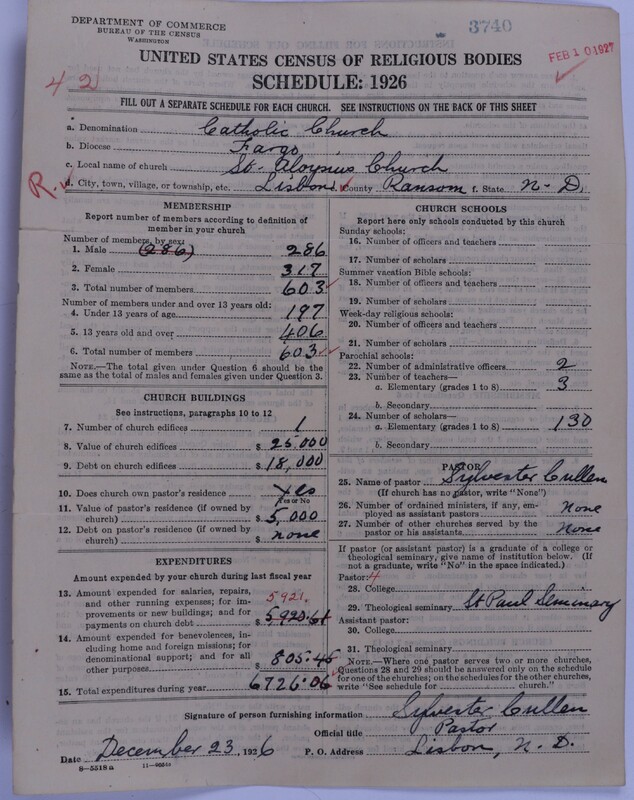 DEPARTMENT OF COMMERCE
BUREAU OF THE CENSUS
WASHINGTON
3740
FEB 10 1927
UNITED STATES CENSUS OF RELIGIOUS BODIES
SCHEDULE: 1926
42
FILL OUT A SEPARATE SCHEDULE FOR EACH CHURCH. SEE INSTRUCTIONS ON THE BACK OF THIS SHEET
a. Denomination Catholic Church
b. Diocese Fargo
c. Local name of church St. Aloysius Church
R. d. City, town, village, or township, etc. Lisbon e. County Ransom f. State N-D
MEMBERSHIP
Report number of members according to definition of
member in your church
Number of members by sex:
1. Male (286) 286
2. Female 317
3. Total number of members 603
Number of members under and over 13 years old:
4. Under 13 years of age 197
5. 13 years old and over 406
6. Total number of members 603
NOTE.—The total given under Question 6 should be the
same as the total of males and females given under Question 3.
CHURCH BUILDINGS
See instructions, paragraphs 10 to 12
7. Number of church edifices 1
8. Value of church edifices $ 25,000
9. Debt on church edifices $ 18,000
10. Does church own pastor's residence Yes
Yes or No
11. Value of pastor's residence (if owned by
church) $ 5,000
12. Debt on pastor's residence (if owned by
church) $ none
EXPENDITURES
Amount expended by your church during last fiscal year
13. Amount expended for salaries, repairs,
and other running expenses; for im-
provements or new buildings; and for
payments on church debt $ 5920.61
5921.
14. Amount expended for benevolences,
including home and foreign missions; for
denominational support; and for all
other purposes $ 805.45
15. Total expenditures during year 6726.06
CHURCH SCHOOLS
Report here only schools conducted by this church
Sunday schools:
16. Number of officers and teachers
17. Number of scholars
Summer vacation Bible schools:
18. Number of officers and teachers
19. Number of scholars
Week-day religious schools:
20. Number of officers and teachers
21. Number of scholars
Parochial schools:
22. Number of administrative officers 2
23. Number of teachers—
a. Elementary (grades 1 to 8) 3
b. Secondary
24. Number of scholars—
a. Elementary (grades 1 to 8) 130
b. Secondary
PASTOR
25. Name of pastor Sylvester Cullen
(If church has no pastor, write "None")
26. Number of ordained ministers, if any, em-
ployed as assistant pastors none
27. Number of other churches served by the
pastor or his assistants none
If pastor (or assistant pastor) is a graduate of a college or
theological seminary, give name of institution below. (If
not a graduate, write "No" in the space indicated.)
Pastor: 4
28. College
29. Theological seminary St Paul Seminary
Assistant pastor:
30. College
31. Theological seminary
NOTE.—Where one pastor serves two or more churches,
Questions 28 and 29 should be answered only on the schedule
for one of the churches; on the schedules for the other churches,
write "See schedule for church."
Signature of person furnishing information Sylvester Cullen
Official title Pastor
Date December 23, 1926 P. O. Address Lisbon, N. D.
8—5518a